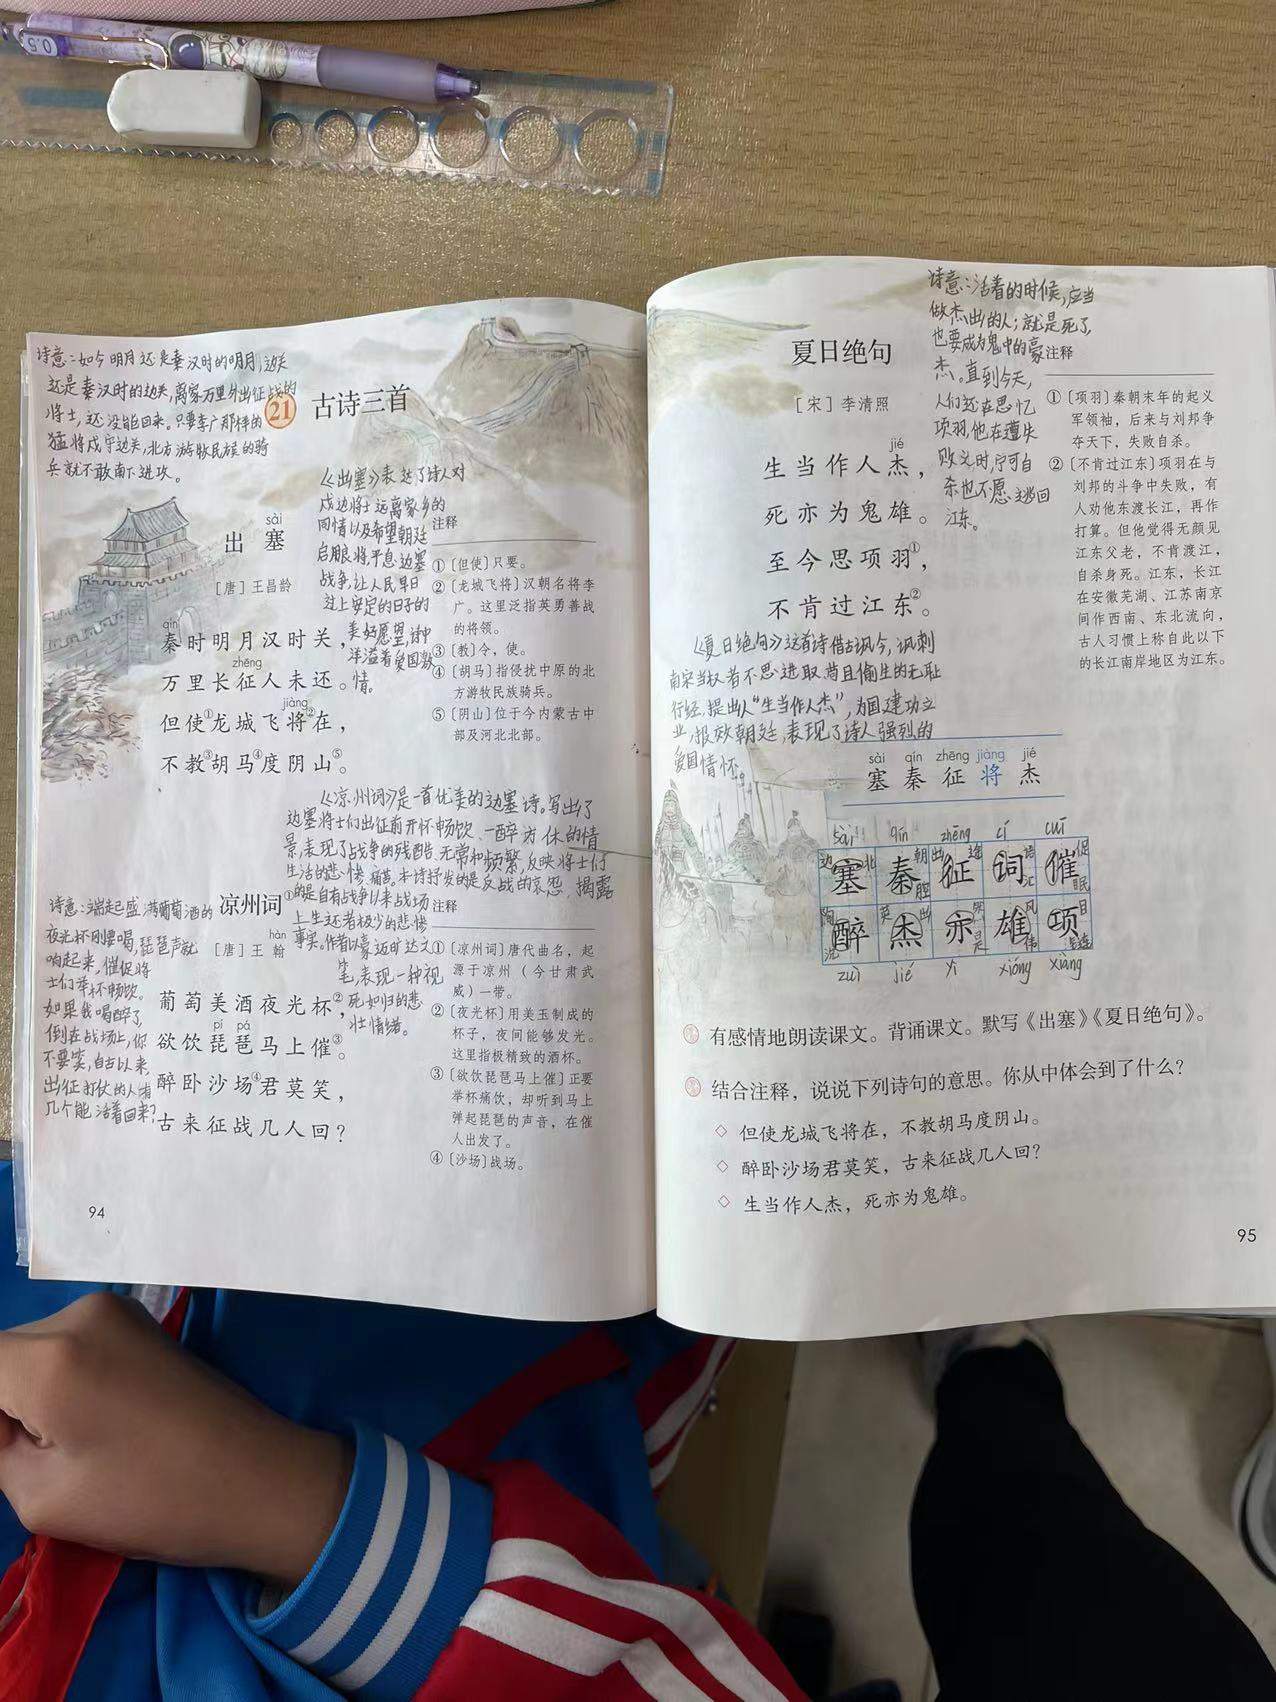 0.5
诗意：如今明月还是秦汉时的明月，边关
还是秦汉时的边关，离家万里外出征战的
将士，还没能回来。只要李广那样的
猛将戍守边关，北方游牧民族的骑
兵就不敢南下进攻。
21 古诗三首
《出塞》表达了诗人对
戍边将士远离家乡的
同情以及希望朝廷
启用良将，平息边塞
战争，让人民早日
过上安定的日子的
美好愿望，诗中
洋溢着爱国激
情。
sài
出塞
［唐］王昌龄
qín
秦时明月汉时关，
zhēng
万里长征人未还。
jiàng
但使①龙城飞将②在，
不教③胡马④度阴山⑤。
注释
①〔但使〕只要。
②〔龙城飞将〕汉朝名将李
广。这里泛指英勇善战
的将领。
③〔教〕令，使。
④〔胡马〕指侵扰中原的北
方游牧民族骑兵。
⑤〔阴山〕位于今内蒙古中
部及河北北部。
《凉州词》是一首优美的边塞诗。写出了
边塞将士们出征前开怀畅饮、一醉方休的情
景，表现了战争的残酷、无常和频繁，反映将士们
生活的悲惨痛苦。本诗抒发的是反战的哀怨，揭露
的是自有战争以来战场
上生还者极少的悲惨
事实。作者以豪迈旷达之
笔，表现一种视
死如归的悲
壮情绪。
诗意：端起盛满葡萄酒的
夜光杯刚要喝，琵琶声就
响起来，催促将
士们举杯畅饮。
如果我喝醉了
倒在战场上，你
不要笑，自古以来，
出征打仗的人有
几个能活着回来？
凉州词①
hàn
［唐］王翰
葡萄美酒夜光杯②，
pí pá
欲饮琵琶马上催③。
醉卧沙场④君莫笑，
古来征战几人回？
注释
①〔凉州词〕唐代曲名，起
源于凉州（今甘肃武
威）一带。
②〔夜光杯〕用美玉制成的
杯子，夜间能够发光。
这里指极精致的酒杯。
③〔欲饮琵琶马上催〕正要
举杯痛饮，却听到马上
弹起琵琶的声音，在催
人出发了。
④〔沙场〕战场。
94
诗意：活着的时候，应当
做杰出的人；就是死了，
也要成为鬼中的豪
杰。直到今天，
人们还在思忆
项羽，他在遭失
败之时，宁可自
杀也不愿逃回
江东。
夏日绝句
［宋］李清照
jié
生当作人杰，
死亦为鬼雄。
至今思项羽①，
不肯过江东②。
注释
①〔项羽〕秦朝末年的起义
军领袖，后来与刘邦争
夺天下，失败自杀。
②〔不肯过江东〕项羽在与
刘邦的斗争中失败，有
人劝他东渡长江，再作
打算。但他觉得无颜见
江东父老，不肯渡江，
自杀身死。江东，长江
在安徽芜湖、江苏南京
间作西南、东北流向，
古人习惯上称自此以下
的长江南岸地区为江东。
《夏日绝句》这首诗借古讽今，讽刺
南宋当权者不思进取、苟且偷生的无耻
行径，提出人“生当作人杰”，为国建功立
业，报效朝廷，表现了诗人强烈的
爱国情怀。
sài qín zhēng jiàng jié
塞 秦 征 将 杰
sài qín zhēng cí cuī
边塞北 秦朝 秦腔 出征 征途 词语 词汇 催促 催眠
醉 英杰 杰出 亦 雄风 雄伟 项目 项链
zuì jié yì xióng xiàng
有感情地朗读课文。背诵课文。默写《出塞》《夏日绝句》。
结合注释，说说下列诗句的意思。你从中体会到了什么？
◇ 但使龙城飞将在，不教胡马度阴山。
◇ 醉卧沙场君莫笑，古来征战几人回？
◇ 生当作人杰，死亦为鬼雄。
95